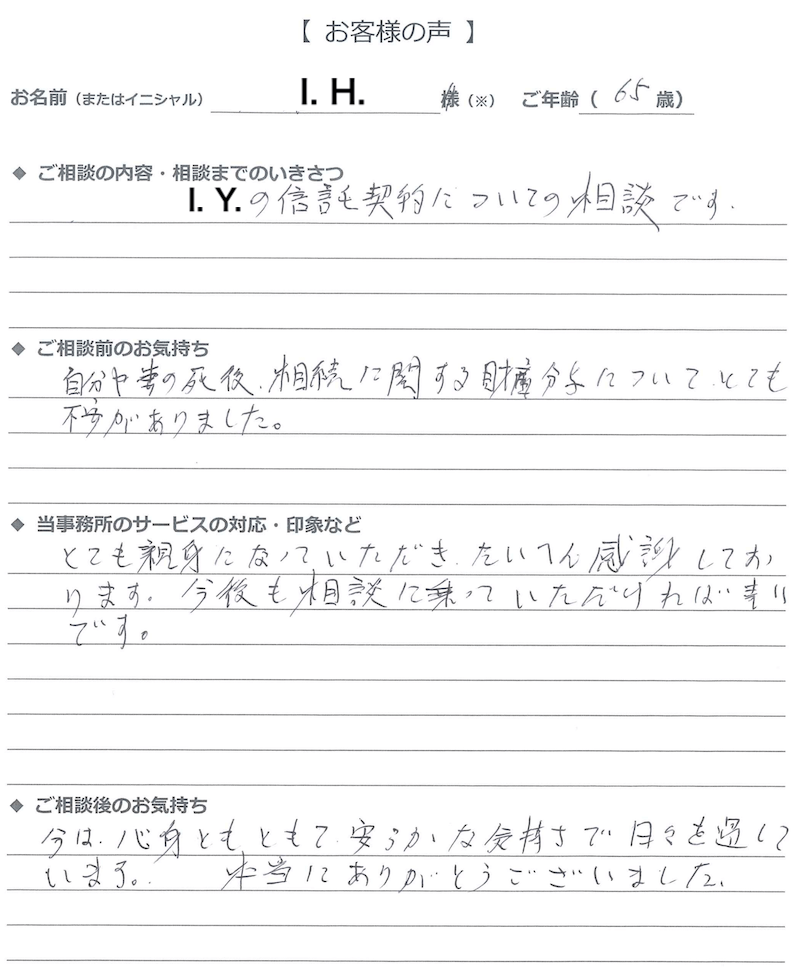 【 お客様の声 】
お名前（またはイニシャル） I. H. 様（※） ご年齢（ 65 歳）
◆ ご相談の内容・相談までのいきさつ
I. Y.の信託契約についての相談です.
◆ ご相談前のお気持ち
自分や妻の死後、相続に関する財産分与についてとても
不安がありました。
◆ 当事務所のサービスの対応・印象など
とても親身になっていただき、たいへん感謝してお
ります。今後も相談に乗っていただければ幸い
です。
◆ ご相談後のお気持ち
今は、心身ともともて安らかな気持ちで日々を過して
います。 本当にありがとうございました。